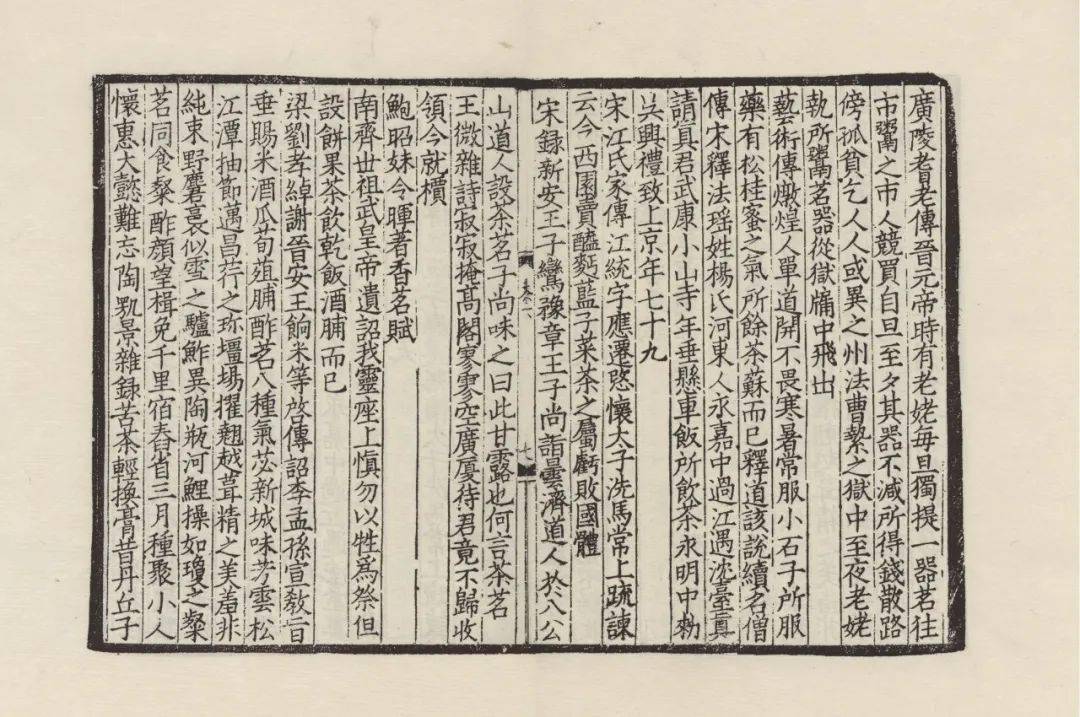 廣陵耆老傳晉元帝時有老姥每旦獨提一器茗往
市鬻之市人競買自旦至夕其器不減所得錢散路
傍孤貧乞人人或異之州法曹縶之獄中至夜老姥
執所鬻茗器從獄牖中飛出
藝術傳燉煌人單道開不畏寒暑常服小石子所服
藥有松桂蜜之氣所餘茶蘇而已釋道該說續名僧
傳宋釋法瑶姓楊氏河東人永嘉中過江遇沈臺真
請真君武康小山寺年垂懸車飯所飲茶永明中勑
吳興禮致上京年七十九
宋江氏家傳江統字應遷愍懷太子洗馬常上疏諫
云今西園賣醯麪藍子菜茶之屬虧敗國體
宋録新安王子鸞豫章王子尚詣曇濟道人於八公
卷一
七
山道人設茶茗子尚味之曰此甘露也何言茶茗
王微雜詩寂寂掩髙閣寥寥空廣厦待君竟不歸收
領今就檟
鮑昭妹令暉著香茗賦
南齊世祖武皇帝遺詔我靈座上慎勿以牲爲祭但
設餅果茶飲乾飯酒脯而已
梁劉孝綽謝晉安王餉米等啓傳詔李孟孫宣教旨
垂賜米酒瓜荀葅脯酢茗八種氣苾新城味芳雲松
江潭抽節邁昌荇之珎壃場擢翹越葺精之美羞非
純束野麏裛似雪之驢鮓異陶瓶河鯉操如瓊之粲
茗同食粲酢顔望楫免千里宿舂省三月種聚小人
懷惠大懿難忘陶弘景雜録苦茶輕換膏昔丹丘子